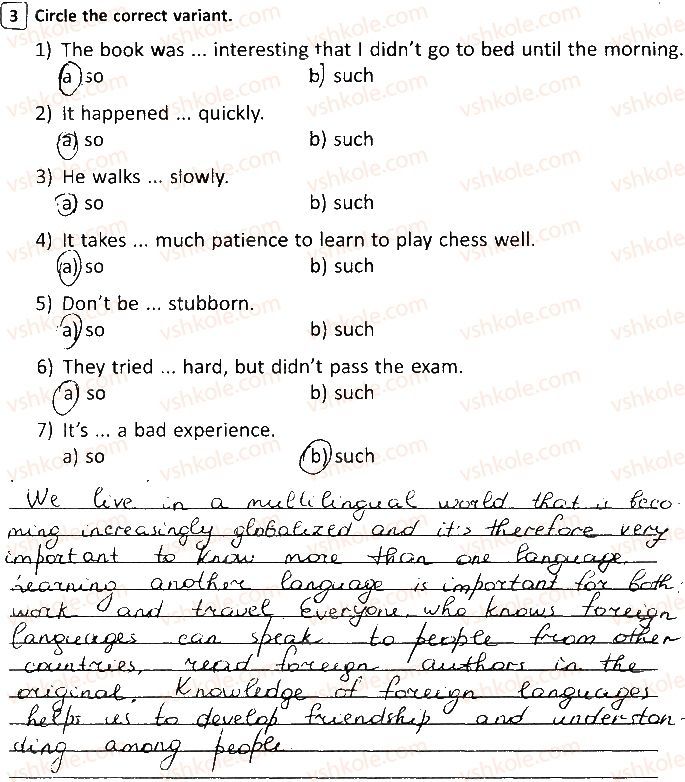 3 Circle the correct variant.
1) The book was ... interesting that I didn't go to bed until the morning.
a) so b) such
2) It happened ... quickly.
a) so b) such
3) He walks ... slowly.
a) so b) such
4) It takes ... much patience to learn to play chess well.
a) so b) such
5) Don't be ... stubborn.
a) so b) such
6) They tried ... hard, but didn't pass the exam.
a) so b) such
7) It's ... a bad experience.
a) so b) such
We live in a multilingual world that is beco-
ming increasingly globalized and it's therefore very
important to know more than one language.
Learning another language is important for both:
work and travel. Everyone, who knows foreign
languages can speak to people from other
countries, read foreign authors in the
original. Knowledge of foreign languages
helps us to develop friendship and understan-
ding among people
vshkole.com